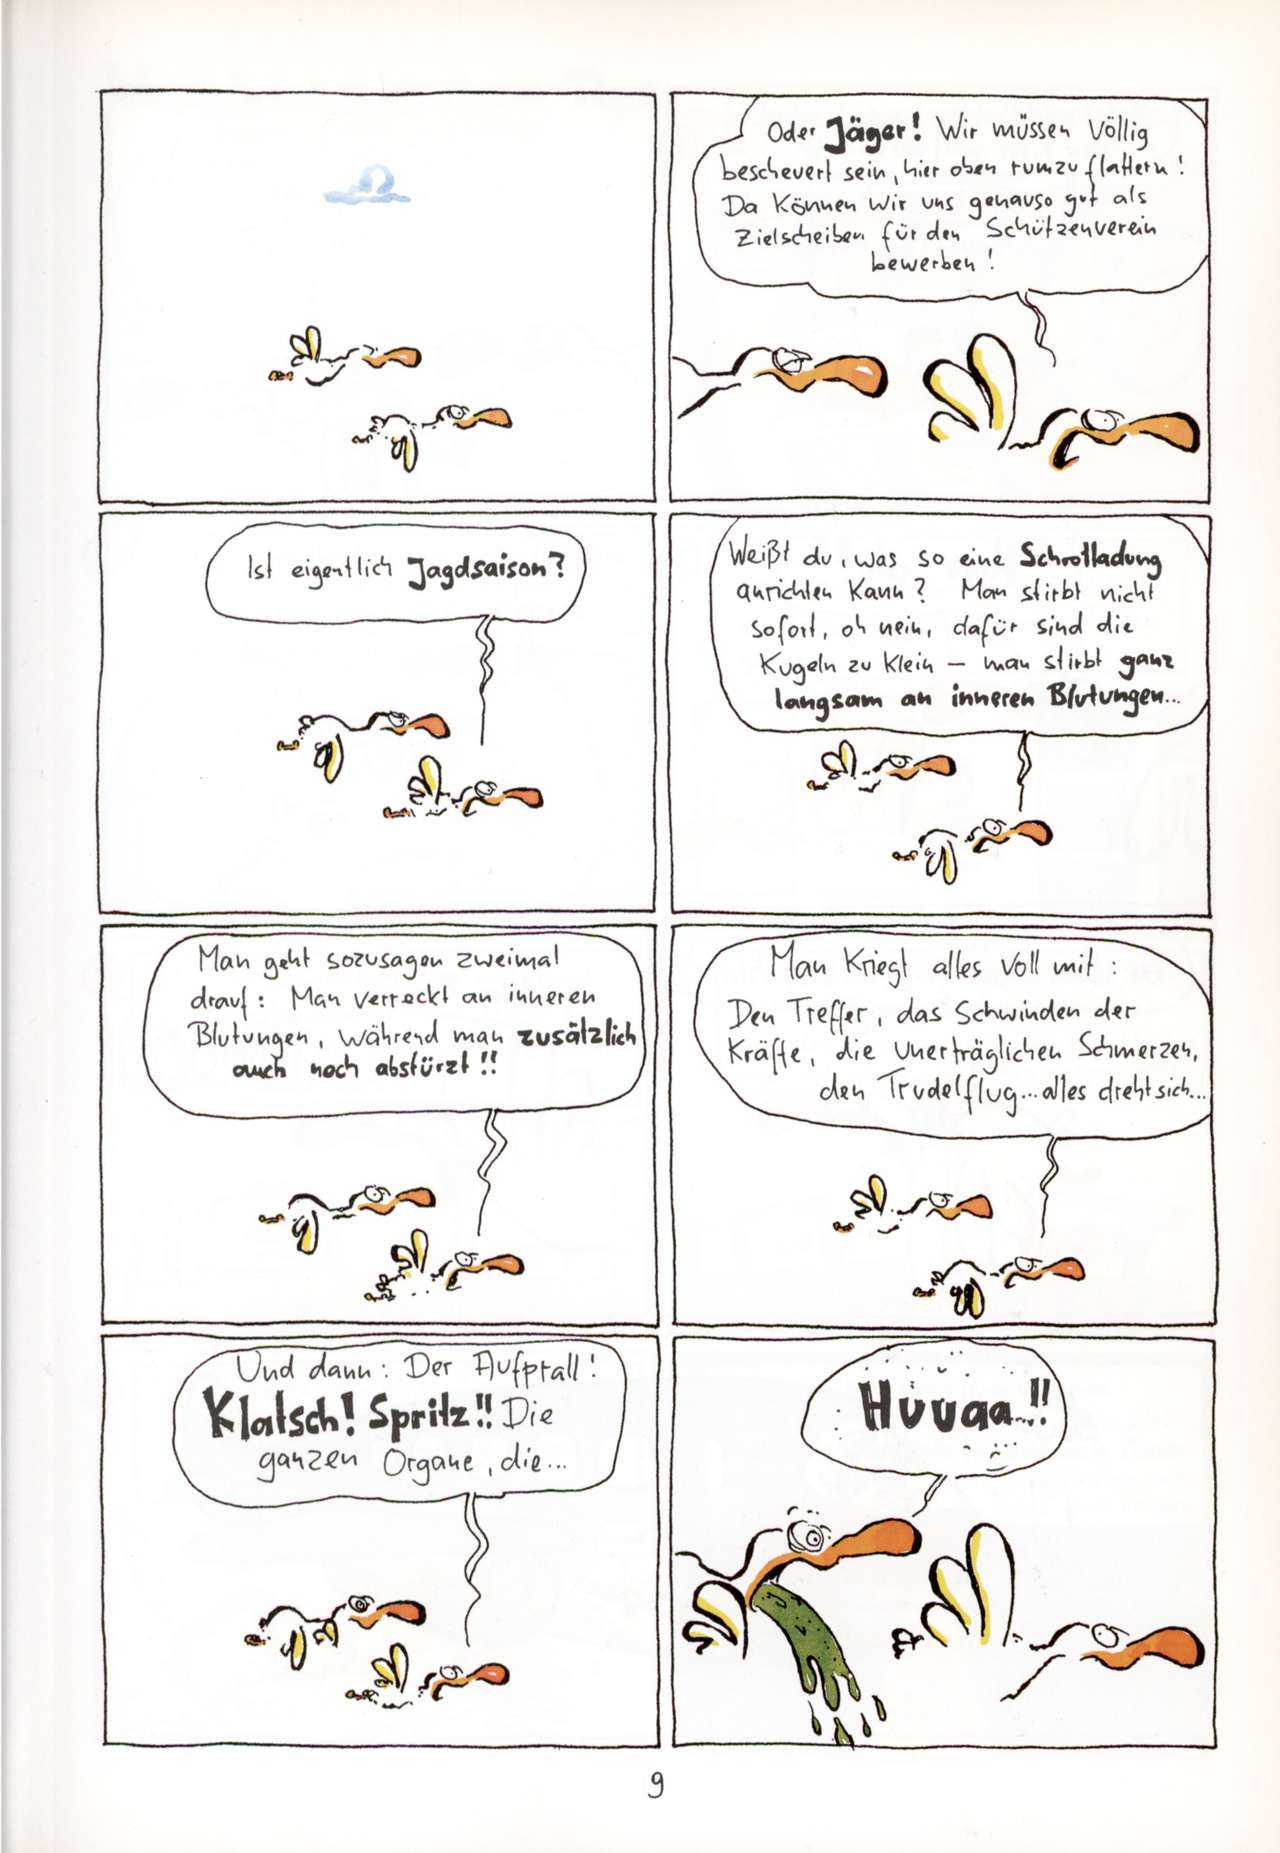 Oder Jäger! Wir müssen völlig
bescheuert sein, hier oben rumzuflattern!
Da können wir uns genauso gut als
Zielscheiben für den Schützenverein
bewerben!
Ist eigentlich Jagdsaison?
Weißt du, was so eine Schrotladung
anrichten kann? Man stirbt nicht
sofort, oh nein, dafür sind die
Kugeln zu klein – man stirbt ganz
langsam an inneren Blutungen...
Man geht sozusagen zweimal
drauf: Man verreckt an inneren
Blutungen, während man zusätzlich
auch noch abstürzt!!
Man kriegt alles voll mit:
Den Treffer, das Schwinden der
Kräfte, die unerträglichen Schmerzen,
den Trudelflug...alles dreht sich...
Und dann: Der Aufprall!
Klatsch! Spritz!! Die
ganzen Organe, die...
Huuaa..!!
9